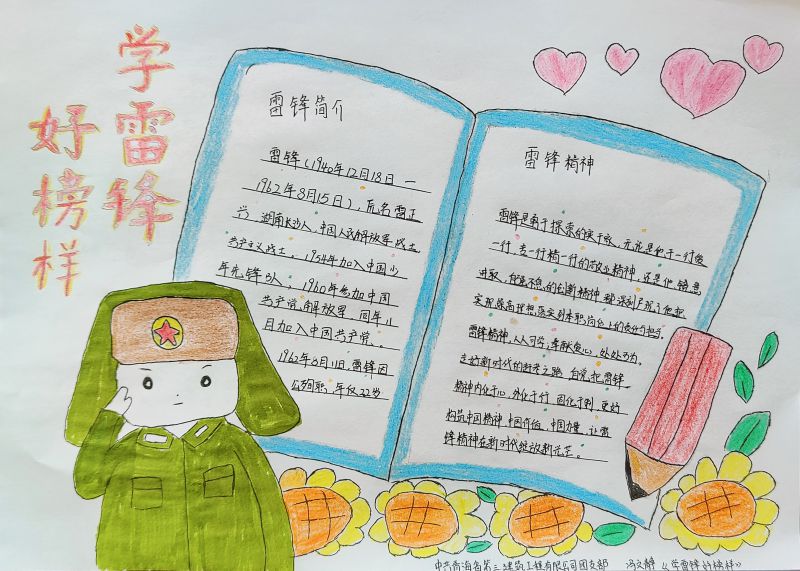 学雷锋
好榜样
雷锋简介
雷锋（1940年12月18日 —
1962年8月15日），原名雷正
兴，湖南长沙人，中国人民解放军战士
共产主义战士，1954年加入中国少
年先锋队，1960年参加中国
解放军，同年11
月加入中国共产党。
1962年8月15日，雷锋因
公殉职，年仅22岁
雷锋精神
雷锋是勇于探索的实干家，无论是他干一行爱
一行，专一行精一行的敬业精神，还是他锐意
进取，自强不息的创新精神都深刻
实现崇高理想落实到本职岗位上的责任与担当。
雷锋精神，人人可学；奉献爱心，处处可为。
走好新时代的长征之路，自觉把雷锋
精神内化于心，外化于行，固化于制，更好
构筑中国精神，中国价值，中国力量，让雷
锋精神在新时代绽放新光芒。
中共青海省第三建筑工程有限公司团支部 冯文静 《学雷锋 好榜样》